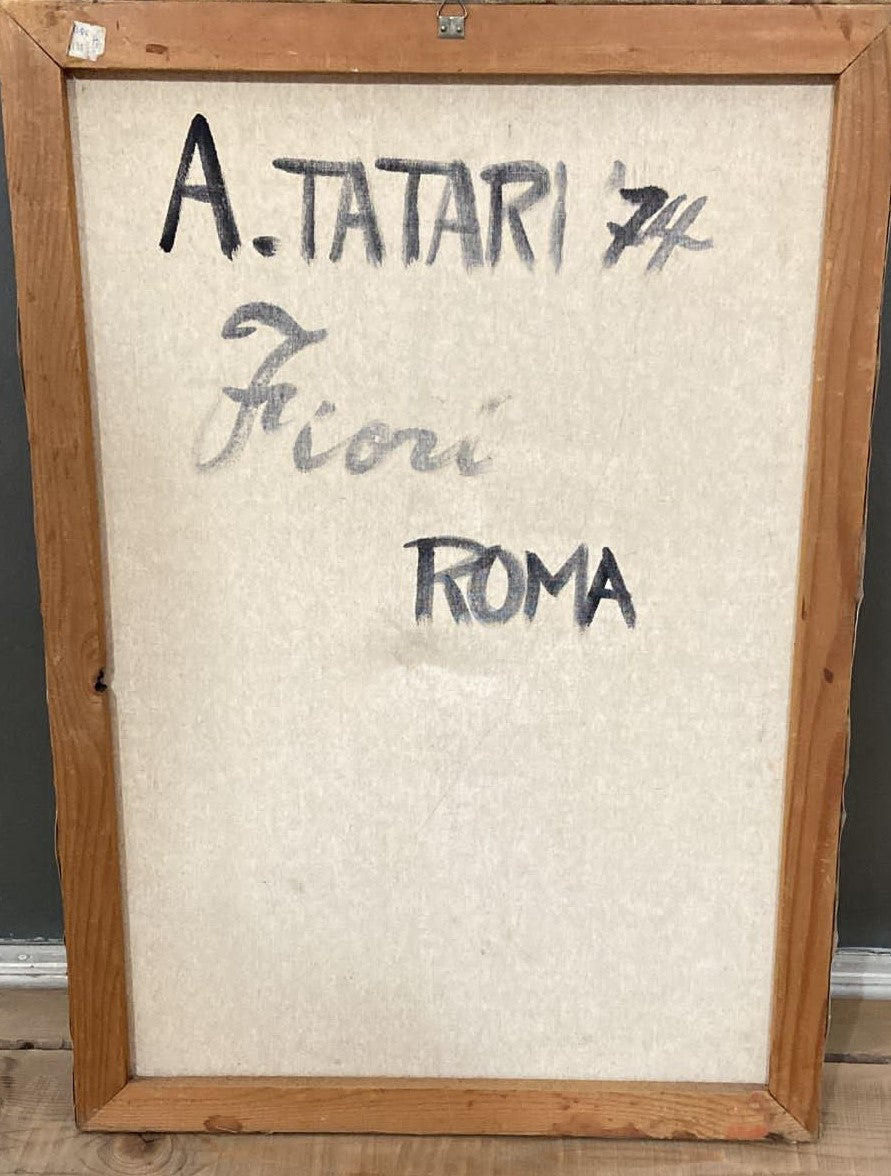 A. TATARI '74
Fiori
ROMA